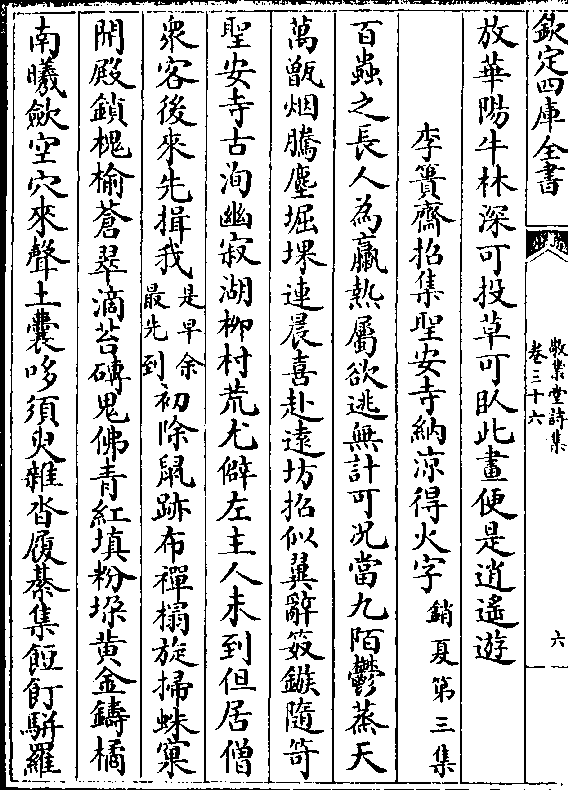 欽定四庫全書
敬業堂詩集
卷三十六
六
放華陽牛林深可投草可臥此畫便是逍遙遊
李簣齋招集聖安寺納涼得火字銷夏第三集
百蟲之長人為蠃熱屬欲逃無計可况當九陌鬱蒸天
萬甑烟騰塵堀堁連晨喜赴遠坊招似翼辭笯鏃隨笴
聖安寺古洵幽寂湖柳村荒尤僻左主人未到但居僧
衆客後來先揖我是早余最先到初除鼠跡布禪榻旋掃蛛窠
開殿鎖槐榆蒼翠滴苔磚鬼佛青紅填粉垜黄金鑄橘
南曦歛空穴來聲土囊哆須臾雜沓履綦集飣餖駢羅